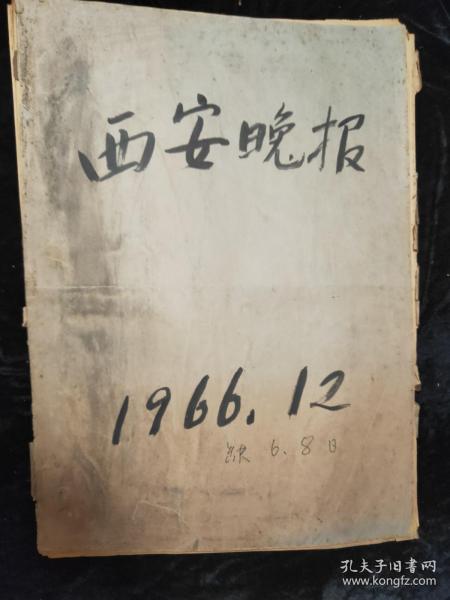 西安晚报
1966.12
缺 6.8日
孔夫子旧书网
www.kongfz.com